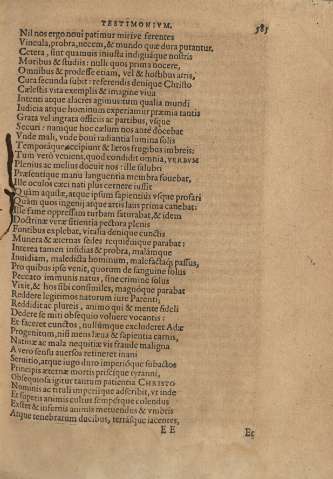 TESTIMONIVM.
585
Nil nos ergo noui patimur mirive ferentes
Vincula, probra, necem, & mundo quæ dura putantur.
Cetera, sint quamuis iniusta indignáque nostris
Moribus & studiis: nulli quos prima nocere,
Omnibus & prodesse etiam, vel & hostibus atris,
Cura secunda subit: referendi denique Christo
Cælestis vita exemplis & imagine viua
Intenti atque alacres agimus: tum qualia mundi
Iudicia atque hominum experiamur præmia tantis
Grata vel ingrata officiis ac partibus, vsque
Securi: nanque hoc cælum nos ante docebat
Vnde mali, vnde boni radiantia lumina solis
Temporáque accipiunt & lætos frugibus imbreis:
Tum verò veniens, quod condidit omnia, VERBVM
Plenius ac melius docuit nos: ille salubri
Præsentíque manu languentia membra fouebat,
Ille oculos cæci nati plus cernere iussit
Quàm aquilæ, atque ipsum sapientius vsque profari
Quàm quos ingenij atque artis laus prima canebat:
Ille fame oppressam turbam saturabat, & idem
Doctrinæ veræ sitientia pectora plenis
Fontibus explebat, vitalia denique cunctis
Munera & æternas sedes requiémque parabat:
Interea tamen insidias & probra, malámque
Inuidiam, maledicta hominum, malefactaq́ passus,
Pro quibus ipse venit, quorum de sanguine solus
Peccato immunis natus, sine crimine solus
Vixit, & hos sibi consimiles, magnóque parabat
Reddere legitimos natorum iure Parenti,
Reddidit ac plureis, animo qui & mente fideli
Dedere se miti obsequio voluere vocantis:
Et faceret cunctos, nullúmque excluderet Adæ
Progenitum, nisi mens læua & sapientia carnis,
Natiuæ ac mala nequitiæ vis fraude maligna
A vero sensu auersos retineret inani
Seruitio, atque iugo duro imperióque subactos
Principis æternæ mortis priscíque tyranni,
Obsequiosa igitur tantum patientia CHRISTO
Nominis ac tituli imperiique adscribit, vt inde
Et superis animis cultus sempérque colendus
Exstet & infernis animis metuendus & vmbris
Atque tenebrarum ducibus, terrásque iacentes,
E E
Et